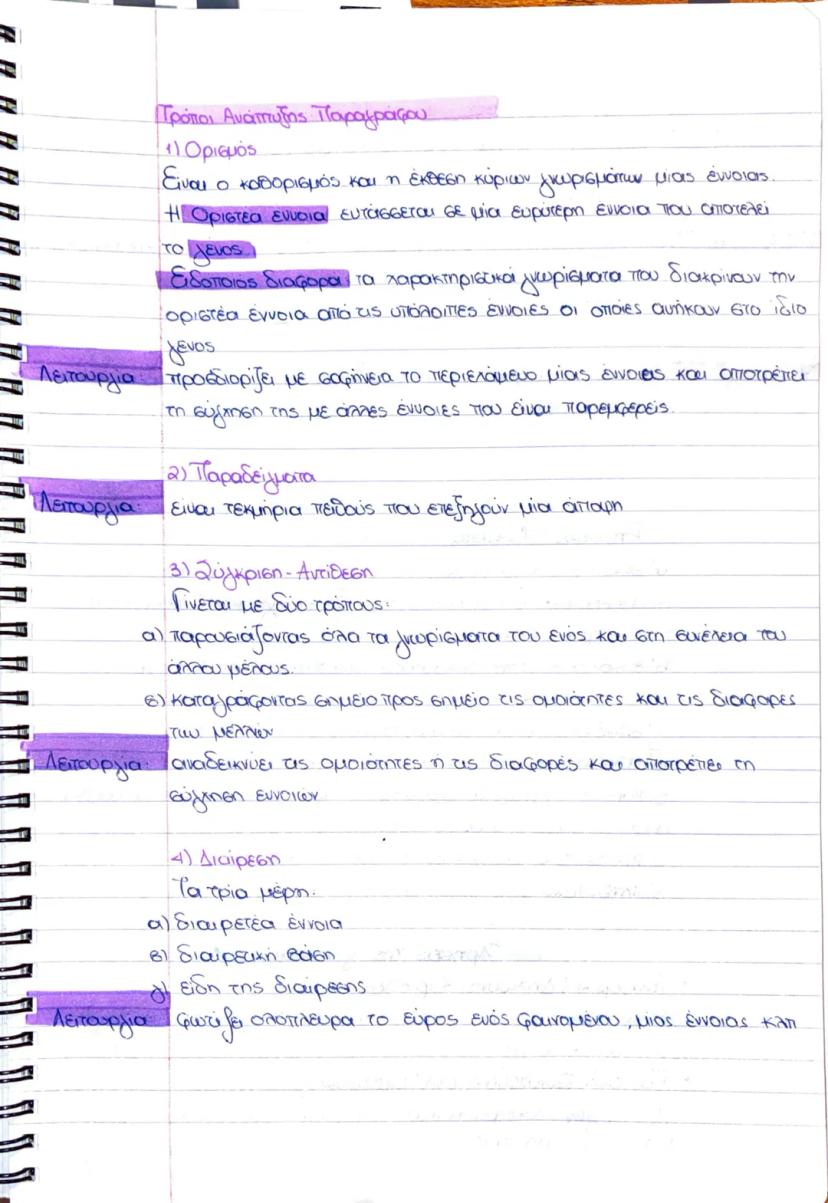 Τρόποι Ανάπτυξης Παραγράφου
1) Ορισμός
Είναι ο καθορισμός και η έκθεση κύριων γνωρισμάτων μιας έννοιας.
Η Οριστέα έννοια εντάσσεται σε μία ευρύτερη έννοια που αποτελεί
το γένος.
Ειδοποιός διαφορά: τα χαρακτηριστικά γνωρίσματα που διακρίνουν την
οριστέα έννοια από τις υπόλοιπες έννοιες οι οποίες ανήκουν στο ίδιο
γένος
Λειτουργία: προσδιορίζει με σαφήνεια το περιεχόμενο μίας έννοιας και αποτρέπει
τη σύγχηση της με άλλες έννοιες που είναι παρεμφερείς.
2) Παραδείγματα
Λειτουργία: είναι τεκμήρια πειθούς που επεξηγούν μία άποψη
3) Σύγκριση - Αντίθεση
Γίνεται με δύο τρόπους:
α) παρουσιάζοντας όλα τα γνωρίσματα του ενός και στη συνέχεια του
άλλου μέλους.
β) καταγράφοντας σημείο προς σημείο τις ομοιότητες και τις διαφορές
των μελλών
Λειτουργία: αναδεικνύει τις ομοιότητες ή τις διαφορές και αποτρέπει τη
σύγχηση εννοιών
4) Διαίρεση
Τα τρία μέρη:
α) διαιρετέα έννοια
β) διαιρετική βάση
γ) είδη της διαίρεσης
Λειτουργία: φωτίζει ολόπλευρα το εύρος ενός φαινομένου, μιας έννοιας κλπ